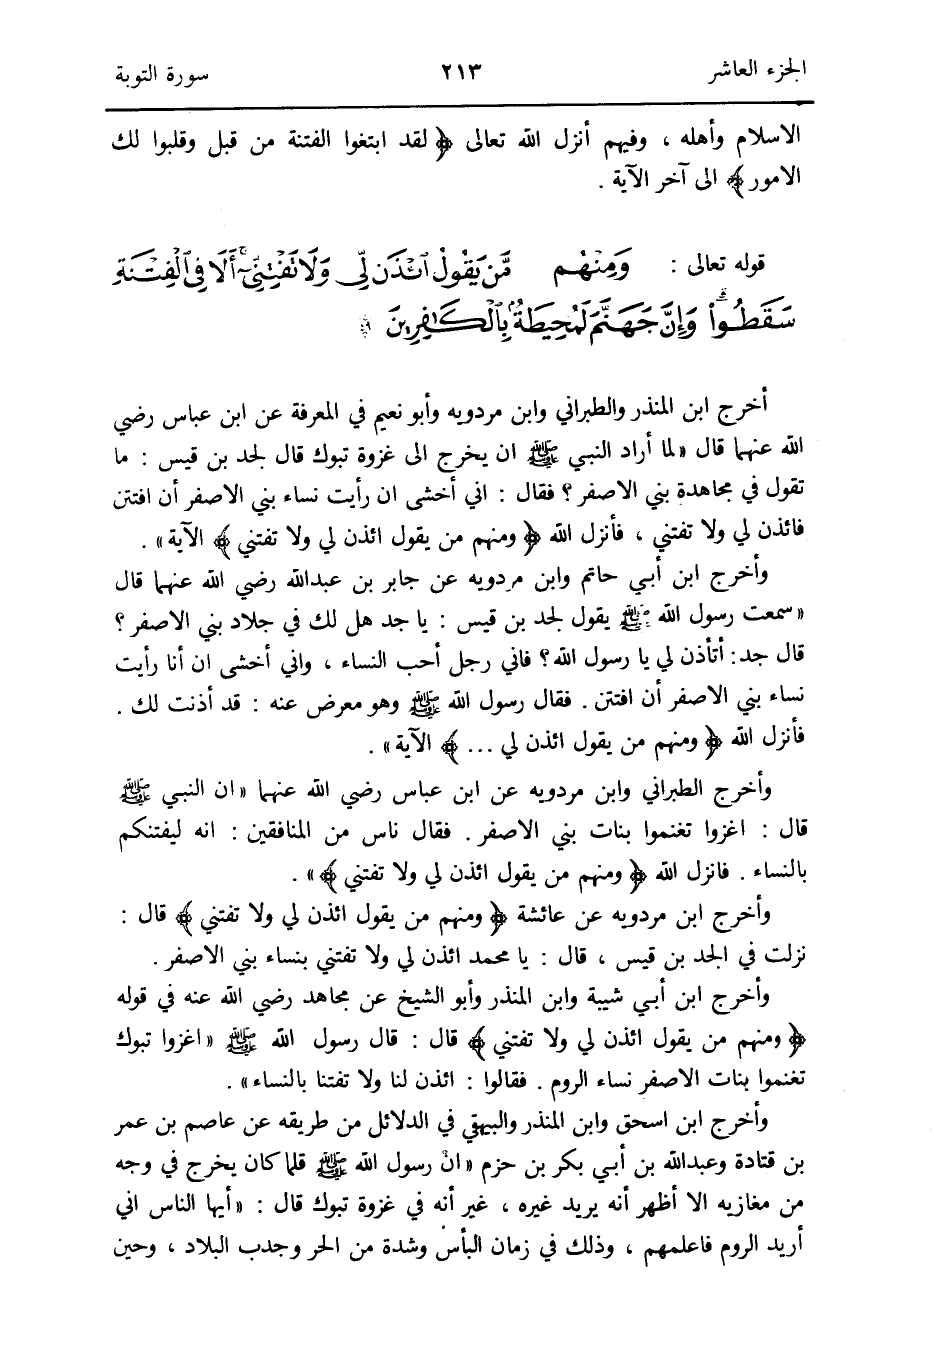 الجزء العاشر ٢١٣ سورة التوبة
الاسلام وأهله ، وفيهم أنزل الله تعالى ﴿ لقد ابتغوا الفتنة من قبل وقلبوا لك
الامور ﴾ الى آخر الآية .
قوله تعالى : وَمِنْهُم مَّن يَقُولُ ٱئْذَن لِّى وَلَا تَفْتِنِّىٓ ۚ أَلَا فِى ٱلْفِتْنَةِ
سَقَطُوا۟ ۗ وَإِنَّ جَهَنَّمَ لَمُحِيطَةٌۢ بِٱلْكَـٰفِرِينَ ٤٩
أخرج ابن المنذر والطبراني وابن مردويه وأبو نعيم في المعرفة عن ابن عباس رضي
الله عنهما قال «لما أراد النبي ﷺ ان يخرج الى غزوة تبوك قال لجد بن قيس : ما
تقول في مجاهدة بني الاصفر ؟ فقال : اني أخشى ان رأيت نساء بني الاصفر أن افتتن
فائذن لي ولا تفتني ، فأنزل الله ﴿ ومنهم من يقول ائذن لي ولا تفتني ﴾ الآية» .
وأخرج ابن أبي حاتم وابن مردويه عن جابر بن عبدالله رضي الله عنهما قال
«سمعت رسول الله ﷺ يقول لجد بن قيس : يا جد هل لك في جلاد بني الاصفر ؟
قال جد : أتأذن لي يا رسول الله؟ فاني رجل أحب النساء ، واني أخشى ان أنا رأيت
نساء بني الاصفر أن افتتن . فقال رسول الله ﷺ وهو معرض عنه : قد أذنت لك .
فأنزل الله ﴿ ومنهم من يقول ائذن لي ... ﴾ الآية» .
وأخرج الطبراني وابن مردويه عن ابن عباس رضي الله عنهما «ان النبي ﷺ
قال : اغزوا تغنموا بنات بني الاصفر . فقال ناس من المنافقين : انه ليفتنكم
بالنساء . فانزل الله ﴿ ومنهم من يقول ائذن لي ولا تفتني ﴾» .
وأخرج ابن مردويه عن عائشة ﴿ ومنهم من يقول ائذن لي ولا تفتني ﴾ قال :
نزلت في الجد بن قيس ، قال : يا محمد ائذن لي ولا تفتني بنساء بني الاصفر .
وأخرج ابن أبي شيبة وابن المنذر وأبو الشيخ عن مجاهد رضي الله عنه في قوله
﴿ ومنهم من يقول ائذن لي ولا تفتني ﴾ قال : قال رسول الله ﷺ «اغزوا تبوك
تغنموا بنات الاصفر نساء الروم . فقالوا : ائذن لنا ولا تفتنا بالنساء» .
وأخرج ابن اسحق وابن المنذر والبيهقي في الدلائل من طريقه عن عاصم بن عمر
بن قتادة وعبدالله بن أبي بكر بن حزم «ان رسول الله ﷺ قلما كان يخرج في وجه
من مغازيه الا أظهر أنه يريد غيره ، غير أنه في غزوة تبوك قال : «أيها الناس اني
أريد الروم فاعلمهم ، وذلك في زمان البأس وشدة من الحر وجدب البلاد ، وحين